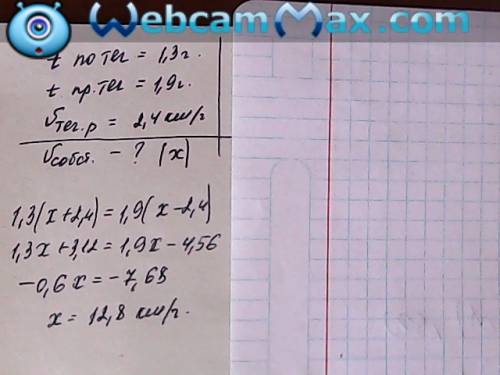 WebcamMax.com
t по теч = 1,3 г.
t пр. теч = 1,9 г.
υтеч. р = 2,4 км/г
υсобст. – ? (x)
1,3(x+2,4)=1,9(x-2,4)
1,3x+3,12=1,9x-4,56
-0,6x=-7,68
x=12,8 км/г.